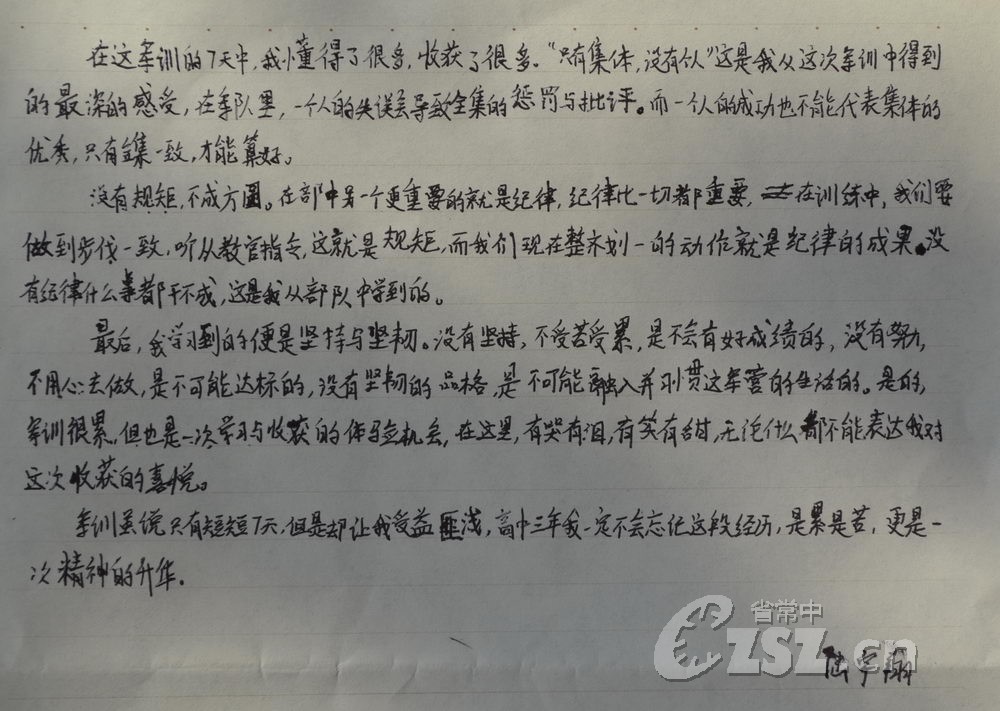 在这军训的7天中,我懂得了很多,收获了很多。“只有集体,没有个人”这是我从这次军训中得到
的最深的感受,在军队里,一个人的失误会导致全集的惩罚与批评。而一个人的成功也不能代表集体的
优秀,只有全集一致,才能算好。
没有规矩,不成方圆。在部中另一个更重要的就是纪律,纪律比一切都重要,在训练中,我们要
做到步伐一致,听从教官指令,这就是规矩,而我们现在整齐划一的动作就是纪律的成果。没
有纪律什么事都干不成,这是我从部队中学到的。
最后,我学习到的便是坚持与坚韧。没有坚持,不受苦受累,是不会有好成绩的,没有努力,
不用心去做,是不可能达标的,没有坚韧的品格,是不可能融入并习惯这军营的生活的。是的,
军训很累,但也是一次学习与收获的体验机会,在这里,有哭有泪,有笑有甜,无论什么都不能表达我对
这次收获的喜悦。
军训虽说只有短短7天,但是却让我受益匪浅,高中三年我一定不会忘记这段经历,是累是苦,更是一
次精神的升华。
省常中
CZSZ.cn
陆宇